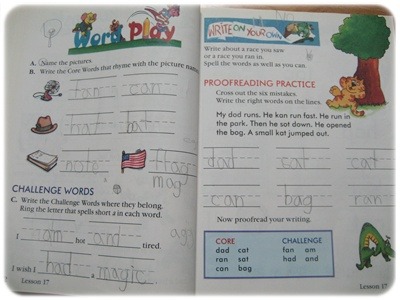 Word Play
A. Name the pictures.
B. Write the Core Words that rhyme with the picture name
fan can
hat bat
note flag
mag
CHALLENGE WORDS
C. Write the Challenge Words where they belong.
Ring the letter that spells short a in each word.
I am hot and tired.
I wish I had a magic
Lesson 17
WRITE ON YOUR OWN
Write about a race you saw
or a race you ran in.
Spell the words as well as you can.
PROOFREADING PRACTICE
Cross out the six mistakes.
Write the right words on the lines.
My dod runs. He kan run fast. He run in
the park. Then he sot down. He opened
the bog. A small kat jumped out.
dad cat cat
can bag ran
Now proofread your writing.
CORE CHALLENGE
dad cat fan am
ran sat had and
can bag
Lesson 17